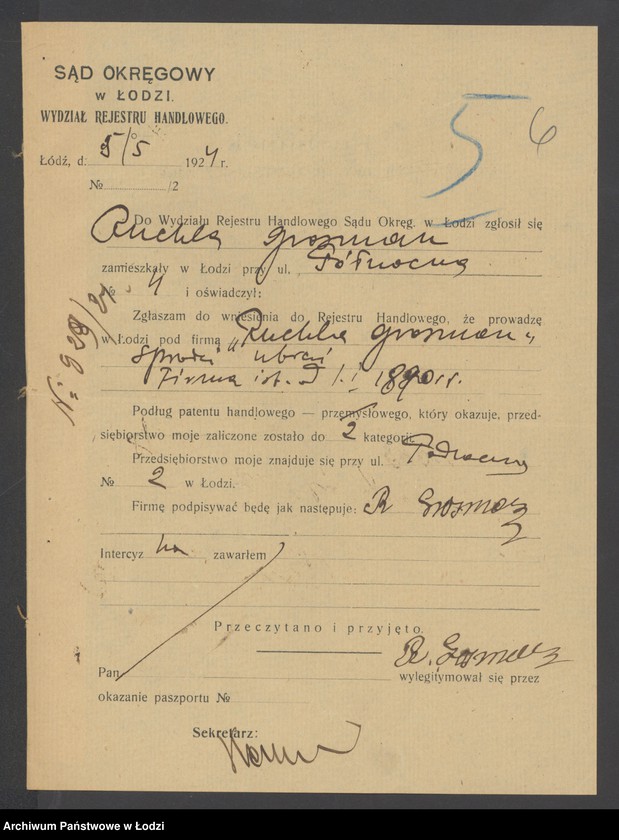 SĄD OKRĘGOWY
w ŁODZI.
WYDZIAŁ REJESTRU HANDLOWEGO.
Łódź, d. 5/5 1924 r.
№ /2
5 6
Do Wydziału Rejestru Handlowego Sądu Okręg. w Łodzi zgłosił się
Ruchla Grosman
zamieszkały w Łodzi przy ul. Północna
№ 4 i oświadczył:
Zgłaszam do wniesienia do Rejestru Handlowego, że prowadzę
w Łodzi pod firmą „Ruchla Grosman"
ubrań
Firma ist. od 1.I 1890 r.
Podług patentu handlowego — przemysłowego, który okazuje, przed-
siębiorstwo moje zaliczone zostało do 2 kategorji.
Przedsiębiorstwo moje znajduje się przy ul. Północna
№ 2 w Łodzi.
Firmę podpisywać będę jak następuje: R Grosman
Intercyz nie zawarłem
Przeczytano i przyjęto.
R. Grosman
Pan wylegitymował się przez
okazanie paszportu №
Sekretarz:
Archiwum Państwowe w Łodzi